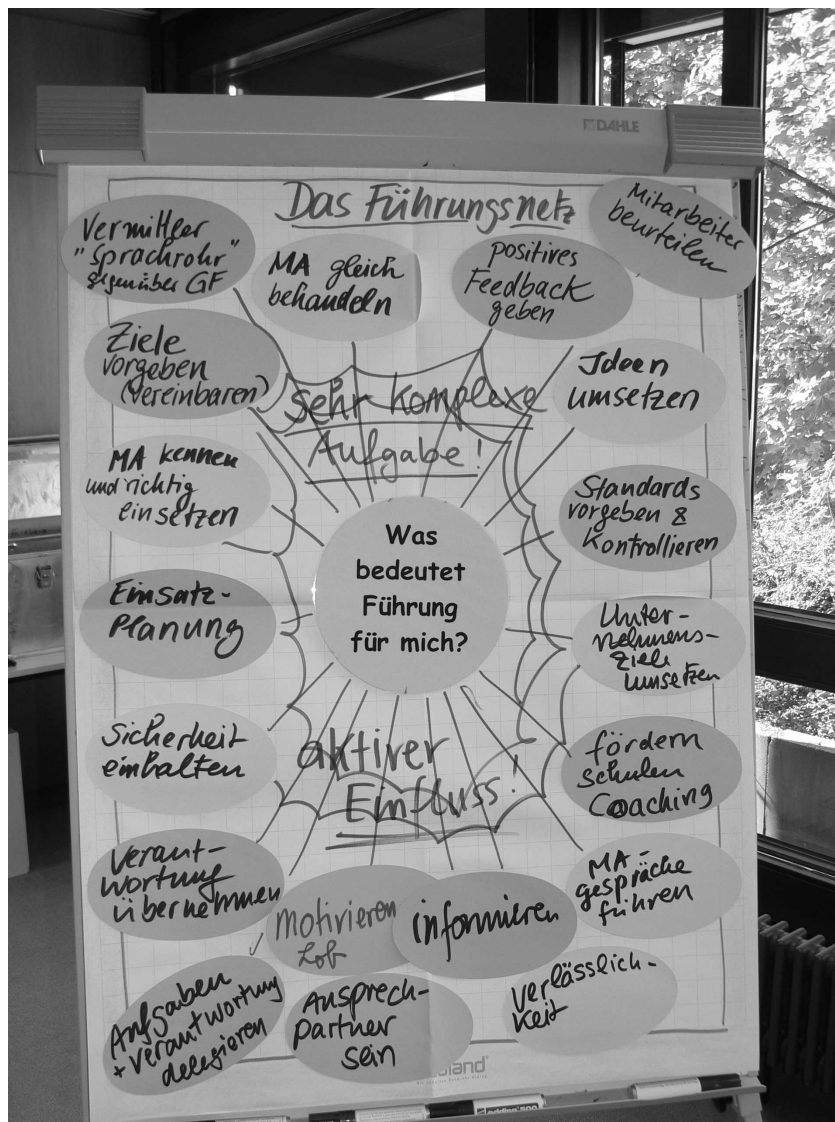 DAHLE
Das Führungsnetz
Mitarbeiter
beurteilen
Vermittler
"Sprachrohr"
gegenüber GF
MA gleich
behandeln
positives
Feedback
geben
Ziele
vorgeben
(vereinbaren)
Ideen
umsetzen
sehr komplexe
Aufgabe!
MA kennen
und richtig
einsetzen
Standards
vorgeben &
Kontrollieren
Was
bedeutet
Führung
für mich?
Einsatz-
Planung
Unter-
nehmens-
ziele
umsetzen
Sicherheit
einhalten
aktiver
Einfluss!
fördern
schulen
Coaching
Verant-
wortung
übernehmen
motivieren
Lob
informieren
MA-
gespräche
führen
Aufgaben
+ Verantwortung
delegieren
Ansprech-
partner
sein
Verlässlich-
keit